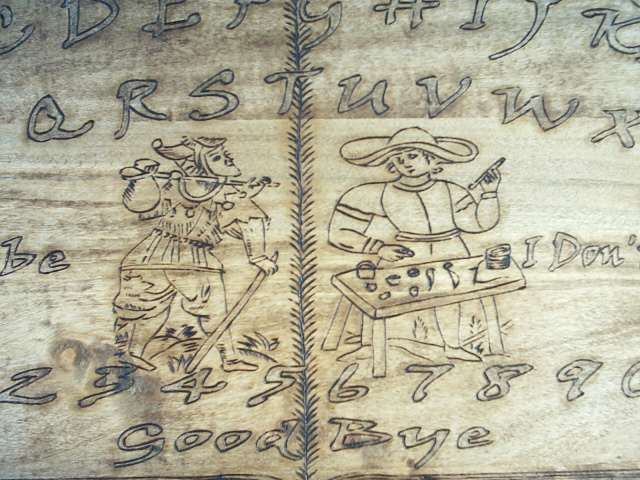 C D E F G H I J K
Q R S T U V W X
be I Don't
2 3 4 5 6 7 8 9 0
Good Bye